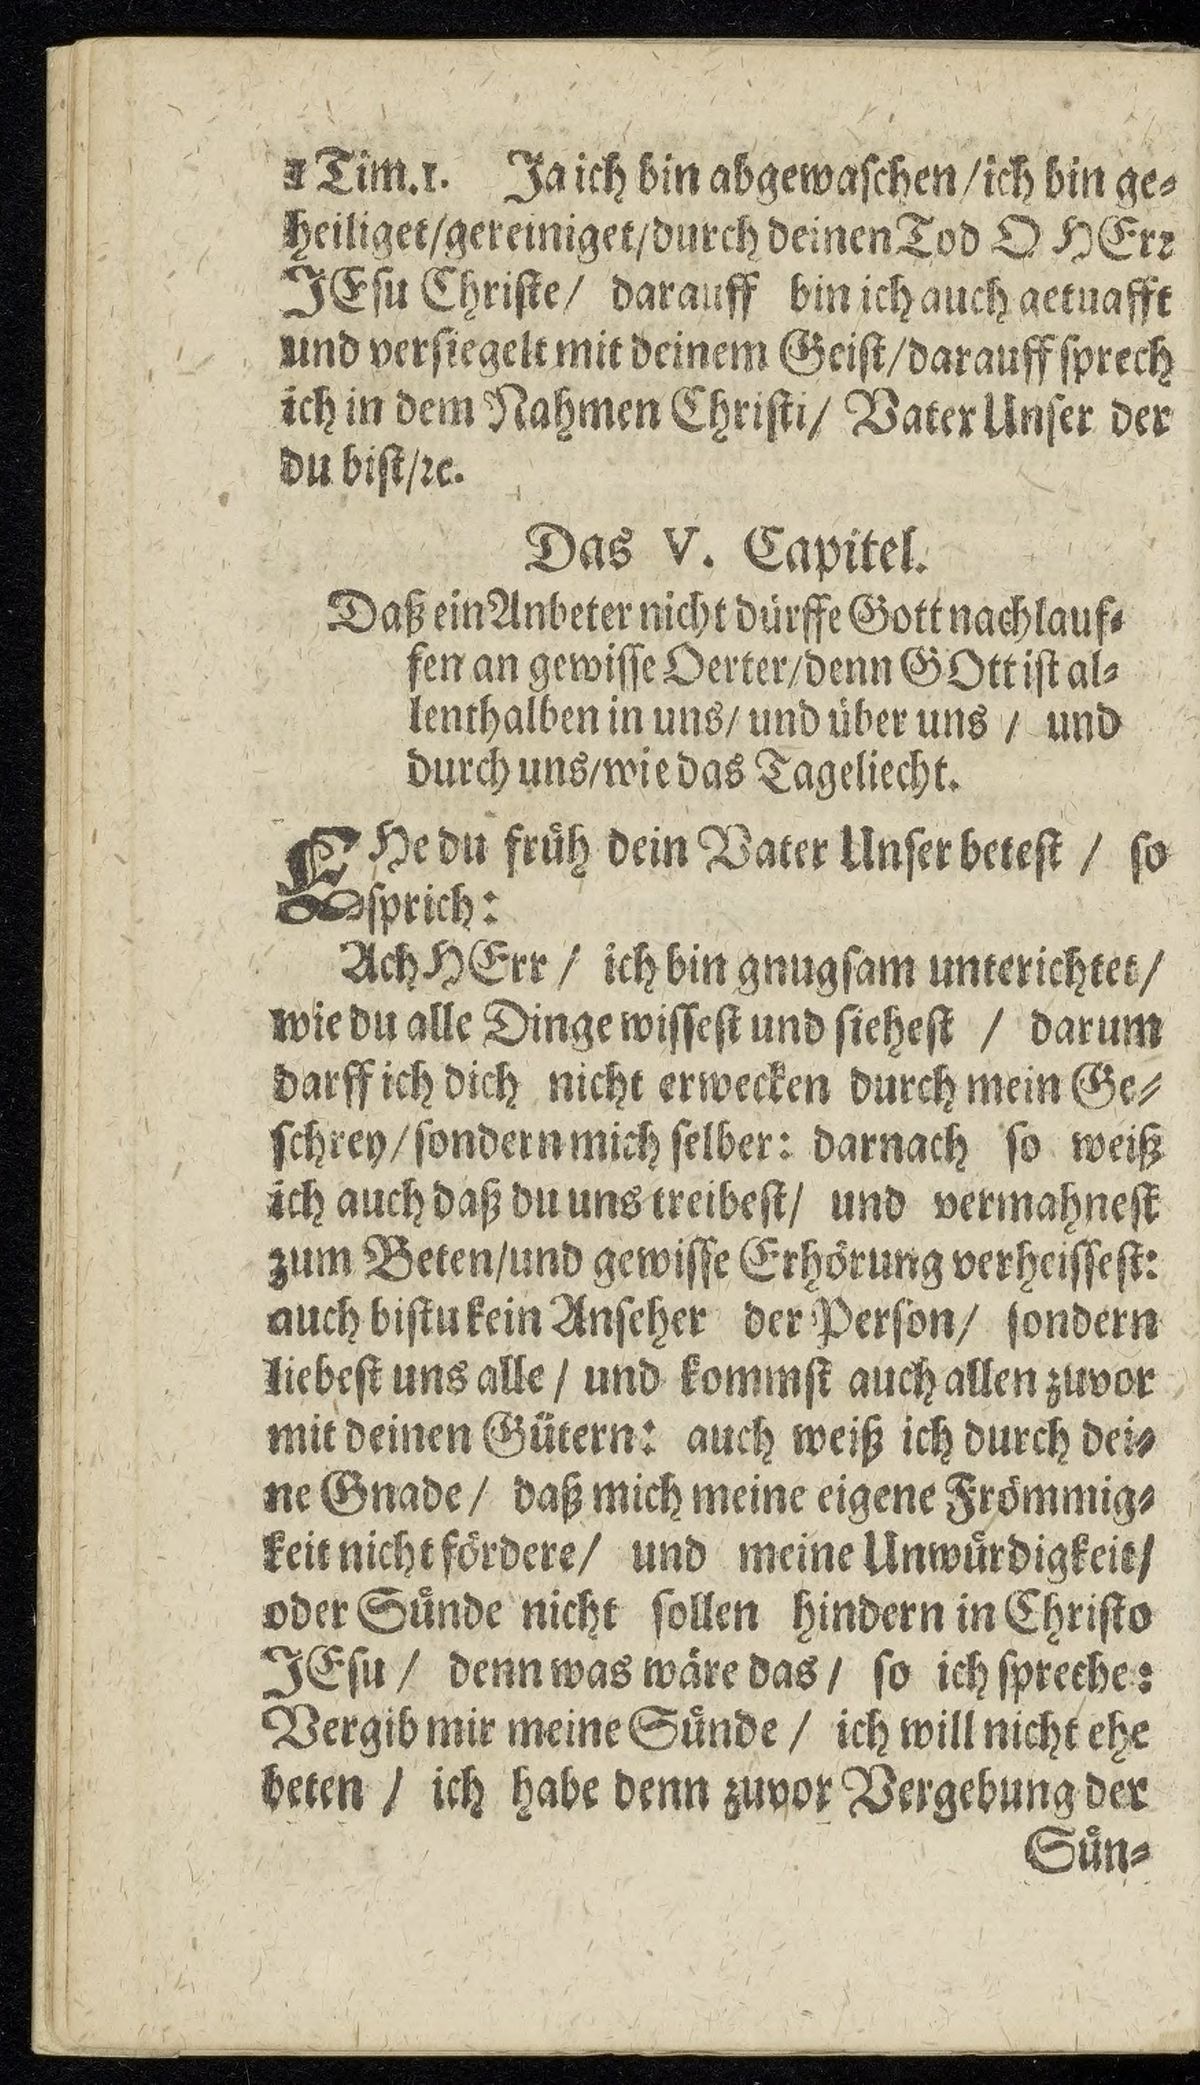 1 Tim. 1. Ja ich bin abgewaschen / ich bin ge-
heiliget / gereiniget / durch deinen Tod O HErr
JEsu Christe / darauff bin ich auch getuafft
und versiegelt mit deinem Geist / darauff sprech
ich in dem Nahmen Christi / Vater Unser der
du bist / ꝛc.
Das V. Capitel.
Daß ein Anbeter nicht dürffe Gott nachlauf-
fen an gewisse Oerter / denn GOtt ist al-
lenthalben in uns / und über uns / und
durch uns / wie das Tageliecht.
EHe du früh dein Vater Unser betest / so
sprich:
Ach HErr / ich bin gnugsam unterichtet /
wie du alle Dinge wissest und siehest / darum
darff ich dich nicht erwecken durch mein Ge-
schrey / sondern mich selber: darnach so weiß
ich auch daß du uns treibest / und vermahnest
zum Beten / und gewisse Erhörung verheissest:
auch bistu kein Anseher der Person / sondern
liebest uns alle / und kommst auch allen zuvor
mit deinen Gütern: auch weiß ich durch dei-
ne Gnade / daß mich meine eigene Frömmig-
keit nicht fördere / und meine Unwürdigkeit /
oder Sünde nicht sollen hindern in Christo
JEsu / denn was wäre das / so ich spreche:
Vergib mir meine Sünde / ich will nicht ehe
beten / ich habe denn zuvor Vergebung der
Sün-